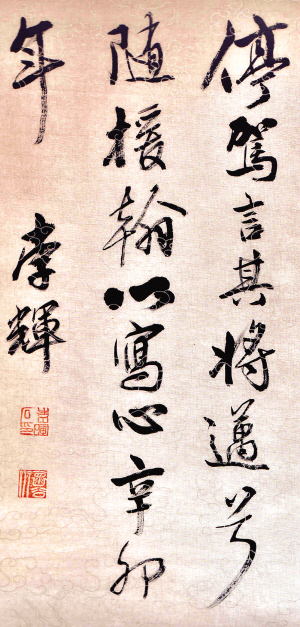 停駕言其將邁兮
隨援翰以寫心辛卯
年 李輝